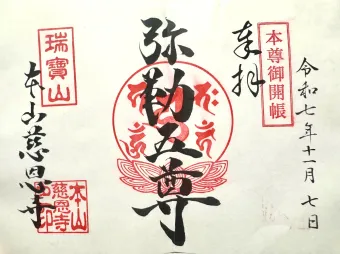 奉拝
本尊御開帳
令和七年十一月七日
弥勒五尊
瑞寶山
本山慈恩寺
本山慈恩寺之印